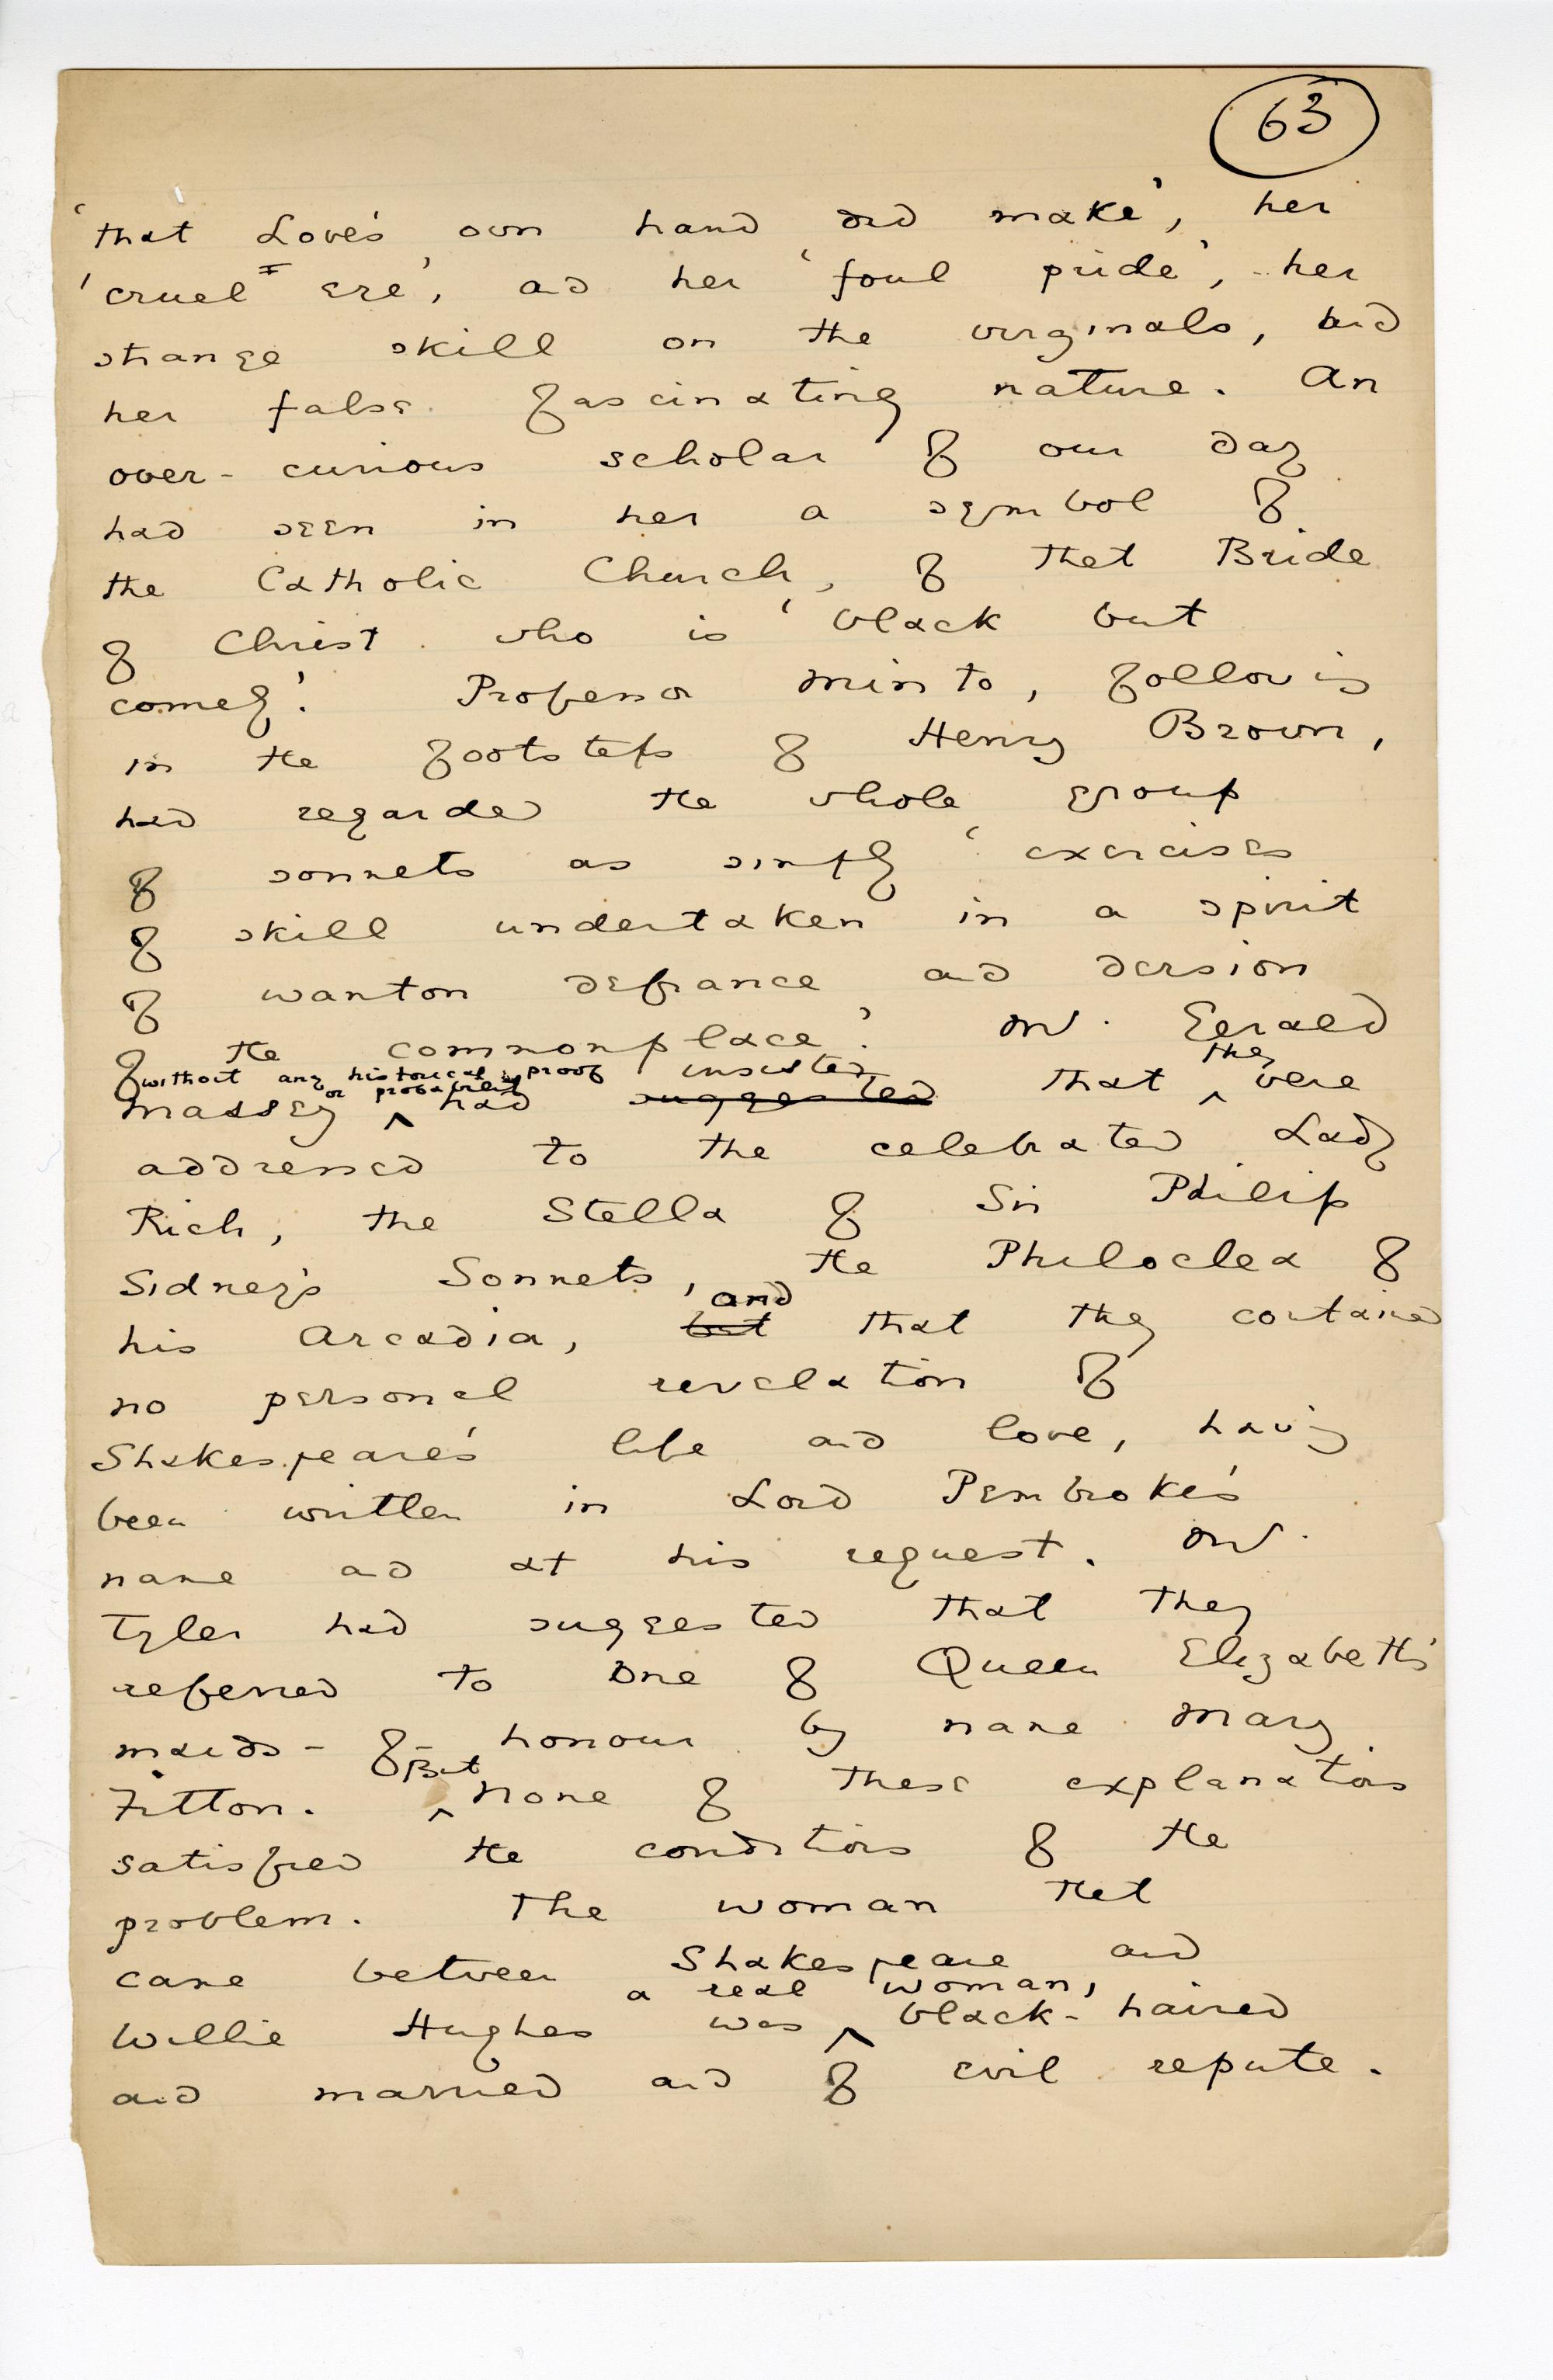 63
'that Love's own hand did make', her
'cruel eye', and her 'foul pride', her
strange skill on the virginals, and
her false fascinating nature. An
over-curious scholar of our day
had seen in her a symbol of
the Catholic Church, of that Bride
of Christ who is 'black but
comely'. Professor Minto, following
in the footsteps of Henry Brown,
had regarded the whole group
of sonnets as simply 'exercises
of skill undertaken in a spirit
of wanton defiance and derision
of the commonplace'. Mr. Gerald
without any historical proof insisted they
or probability
Massey ^ had suggested that ^ were
addressed to the celebrated Lady
Rich, the Stella of Sir Philip
Sidney's Sonnets, the Philoclea of
and
his Arcadia, but that they contained
no personal revelation of
Shakespeare's life and love, having
been written in Lord Pembroke's
name and at his request. Mr.
Tyler had suggested that they
referred to one of Queen Elizabeth's
maids-of-honour by name Mary
But
Fitton. ^ None of these explanations
satisfied the conditions of the
problem. The woman that
came between Shakespeare and
a real woman,
Willie Hughes was ^ black-haired
and married and of evil repute.